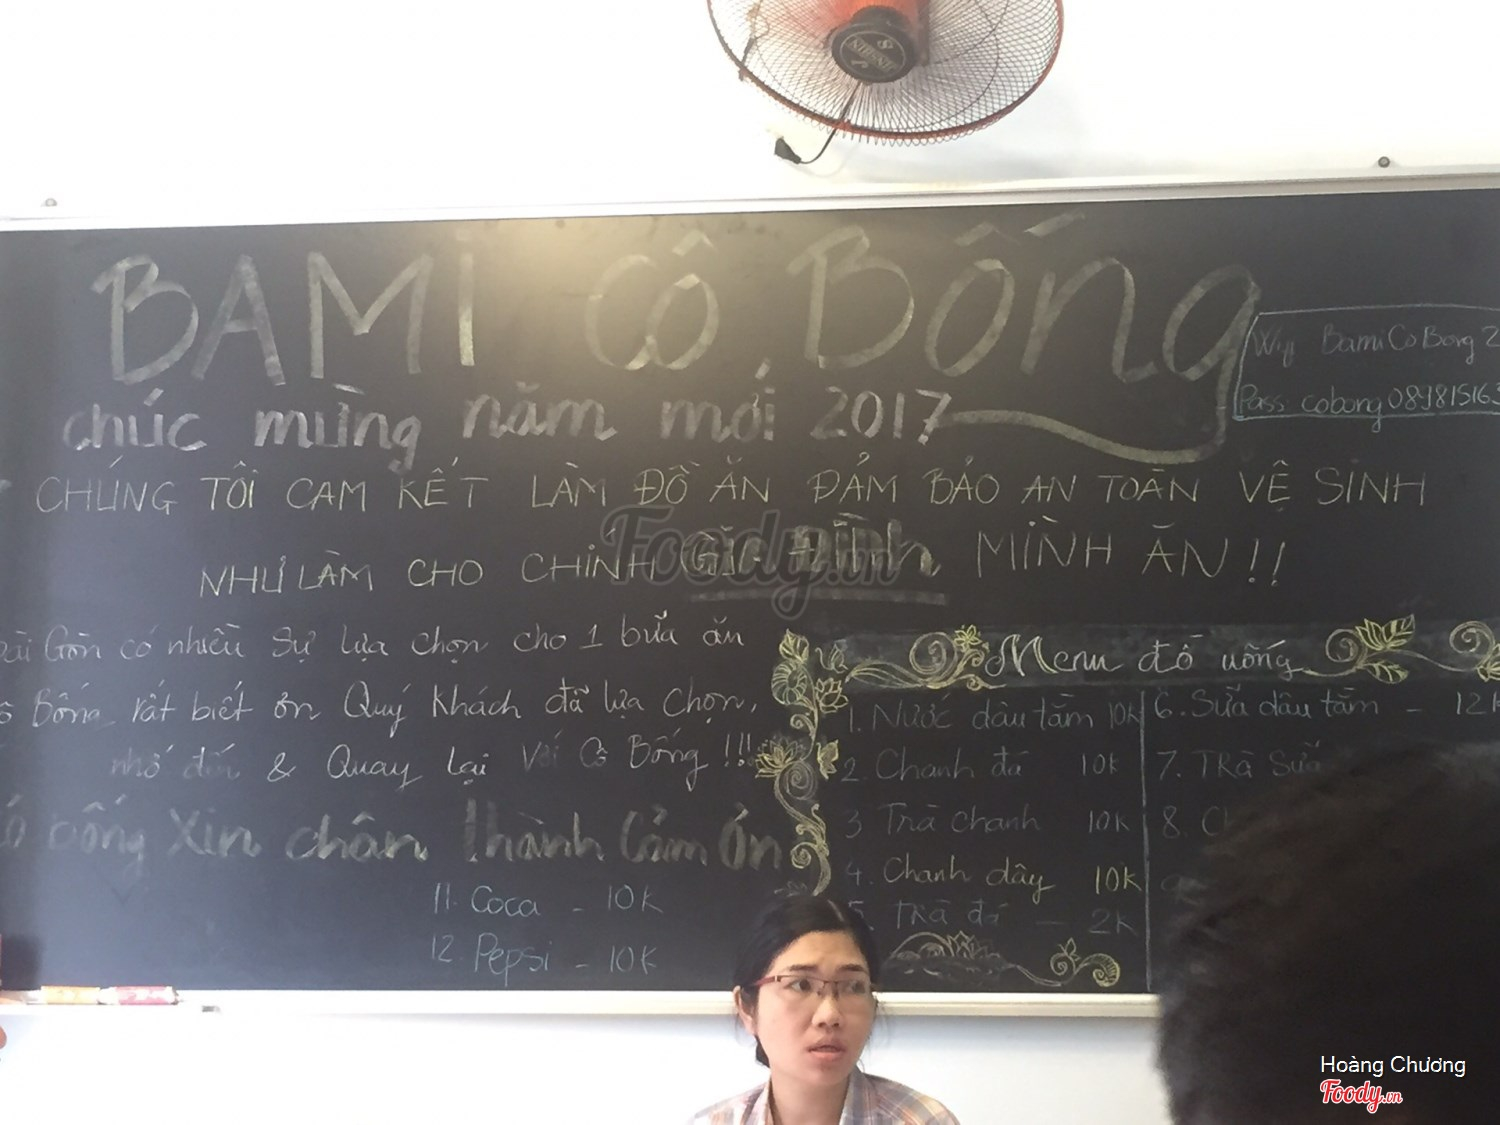 BAMÌ CÔ BỐNG
chúc mừng năm mới 2017
Wifi BamiCoBong 2
Pass: cobong 089815163
CHÚNG TÔI CAM KẾT LÀM ĐỒ ĂN ĐẢM BẢO AN TOÀN VỆ SINH
NHƯ LÀM CHO CHÍNH GIA ĐÌNH MÌNH ĂN!!
Sài Gòn có nhiều sự lựa chọn cho 1 bữa ăn
Bống rất biết ơn Quý Khách đã lựa chọn,
nhớ đến & Quay lại với Cô Bống !!!
Cô bống xin chân thành cảm ơn
Menu đồ uống
1. Nước dâu tằm 10K
2. Chanh đá 10K
3 Trà chanh 10K
4. Chanh dây 10K
5. Trà đá - 2K
6. Sữa dâu tằm - 12K
7. Trà Sữa
8. C
11. Coca - 10K
12. Pepsi - 10K
Foody.vn
Hoàng Chương
Foody.vn